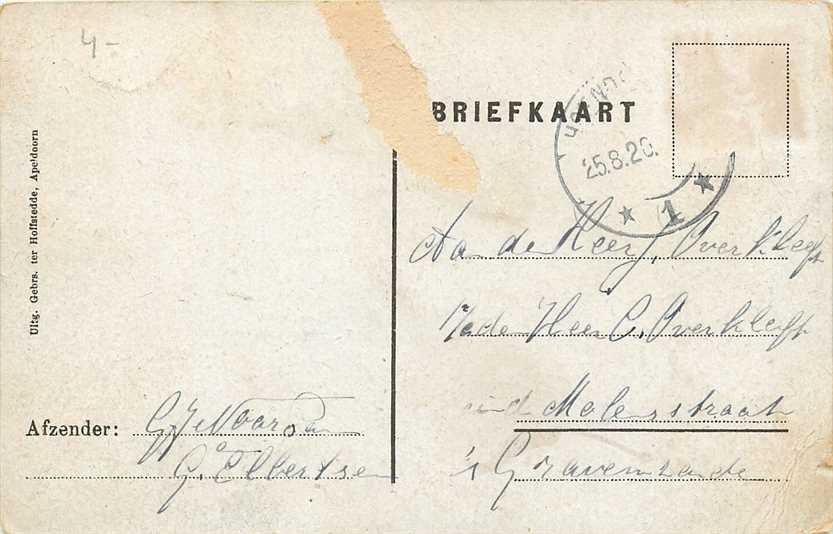 4-
BRIEFKAART
25.8.20.
1
Aan de Heer J. Overkleeft
de Heer C. Overkleeft
Molenstraat
's Gravenzande
Afzender:
G. Elbertsen
Uitg. Gebrs. ter Hoffstedde, Apeldoorn